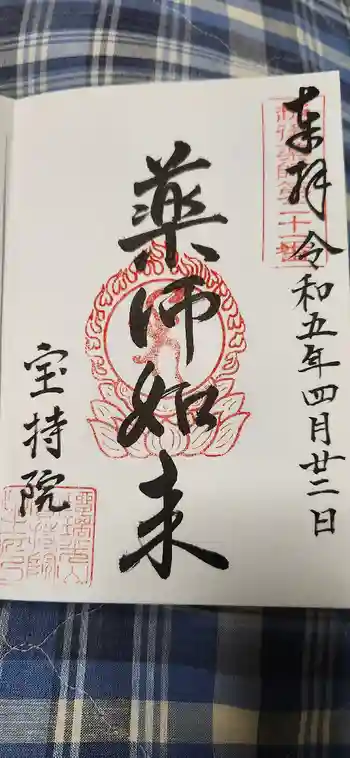 奉拝
令和五年四月廿二日
薬師如来
宝持院